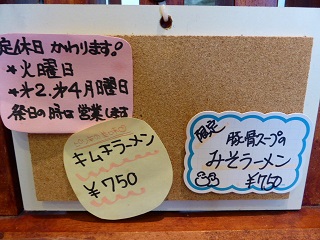 定休日 かわります!
*火曜日
*オ2.オ4月曜日
祭日の時は営業します
キムチラーメン
¥750
限定
豚骨スープの
みそラーメン
¥750